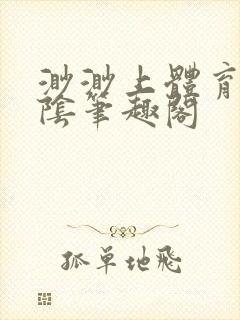 渺渺上體育
陰筆趣閣
孤單地飛